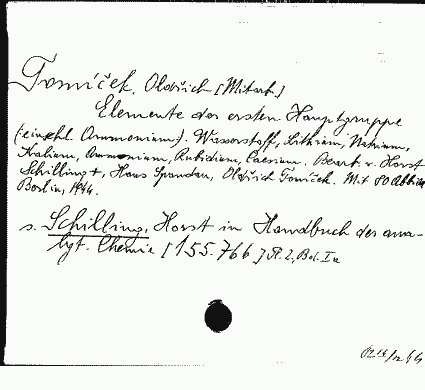 Tomíček, Oldřich [Mitarb.]
Elemente der ersten Hauptgruppe
(einschl. Ammonium). Wasserstoff, Lithium, Natrium,
Kalium, Ammonium, Rubidium, Caesium. Bearb. v. Horst
Schilling +, Hans Spandau, Oldřich Tomíček. Mit 80 Abbildn
Berlin, 1944.
s. Schilling, Horst in Handbuch der ana-
lyt. Chemie [155.766] Tl. 2, Bd. Ia